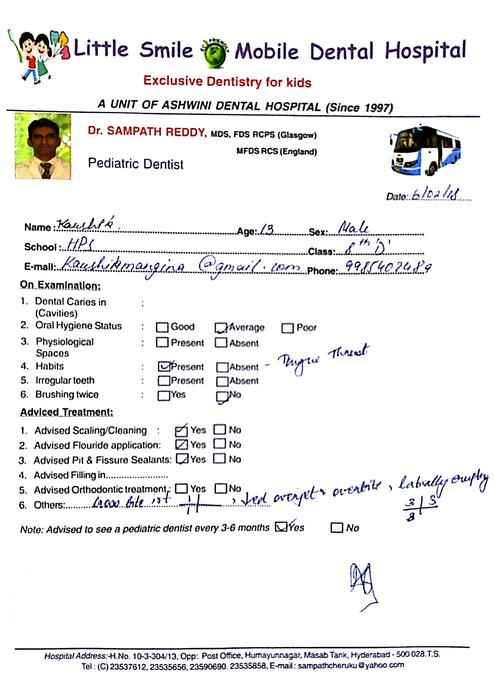 Little Smile Mobile Dental Hospital
Exclusive Dentistry for kids
A UNIT OF ASHWINI DENTAL HOSPITAL (Since 1997)
Dr. SAMPATH REDDY, MDS, FDS RCPS (Glasgow)
MFDS RCS (England)
Pediatric Dentist
Date: 6/02/18
Name: Kaushik. Age: 13 Sex: Male
School: HPS Class: 8th 'D'
E-mail: Kaushikmangina@gmail.com Phone: 9985402489
On Examination:
1. Dental Caries in :
(Cavities)
2. Oral Hygiene Status : Good Average Poor
3. Physiological : Present Absent
Spaces
4. Habits : Present Absent - Tongue Thrust
5. Irregular teeth : Present Absent
6. Brushing twice : Yes No
Adviced Treatment:
1. Advised Scaling/Cleaning : Yes No
2. Advised Flouride application: Yes No
3. Advised Pit & Fissure Sealants: Yes No
4. Advised Filling in....................
5. Advised Orthodontic treatment: Yes No
6. Others: Cross bite irt , overjet & overbite, labially erupting 3 3 3
Note: Advised to see a pediatric dentist every 3-6 months Yes No
Hospital Address:-H.No. 10-3-304/13, Opp: Post Office, Humayunnagar, Masab Tank, Hyderabad - 500 028.T.S.
Tel : (C) 23537612, 23535656, 23590690. 23535858, E-mail : sampathcheruku@yahoo.com